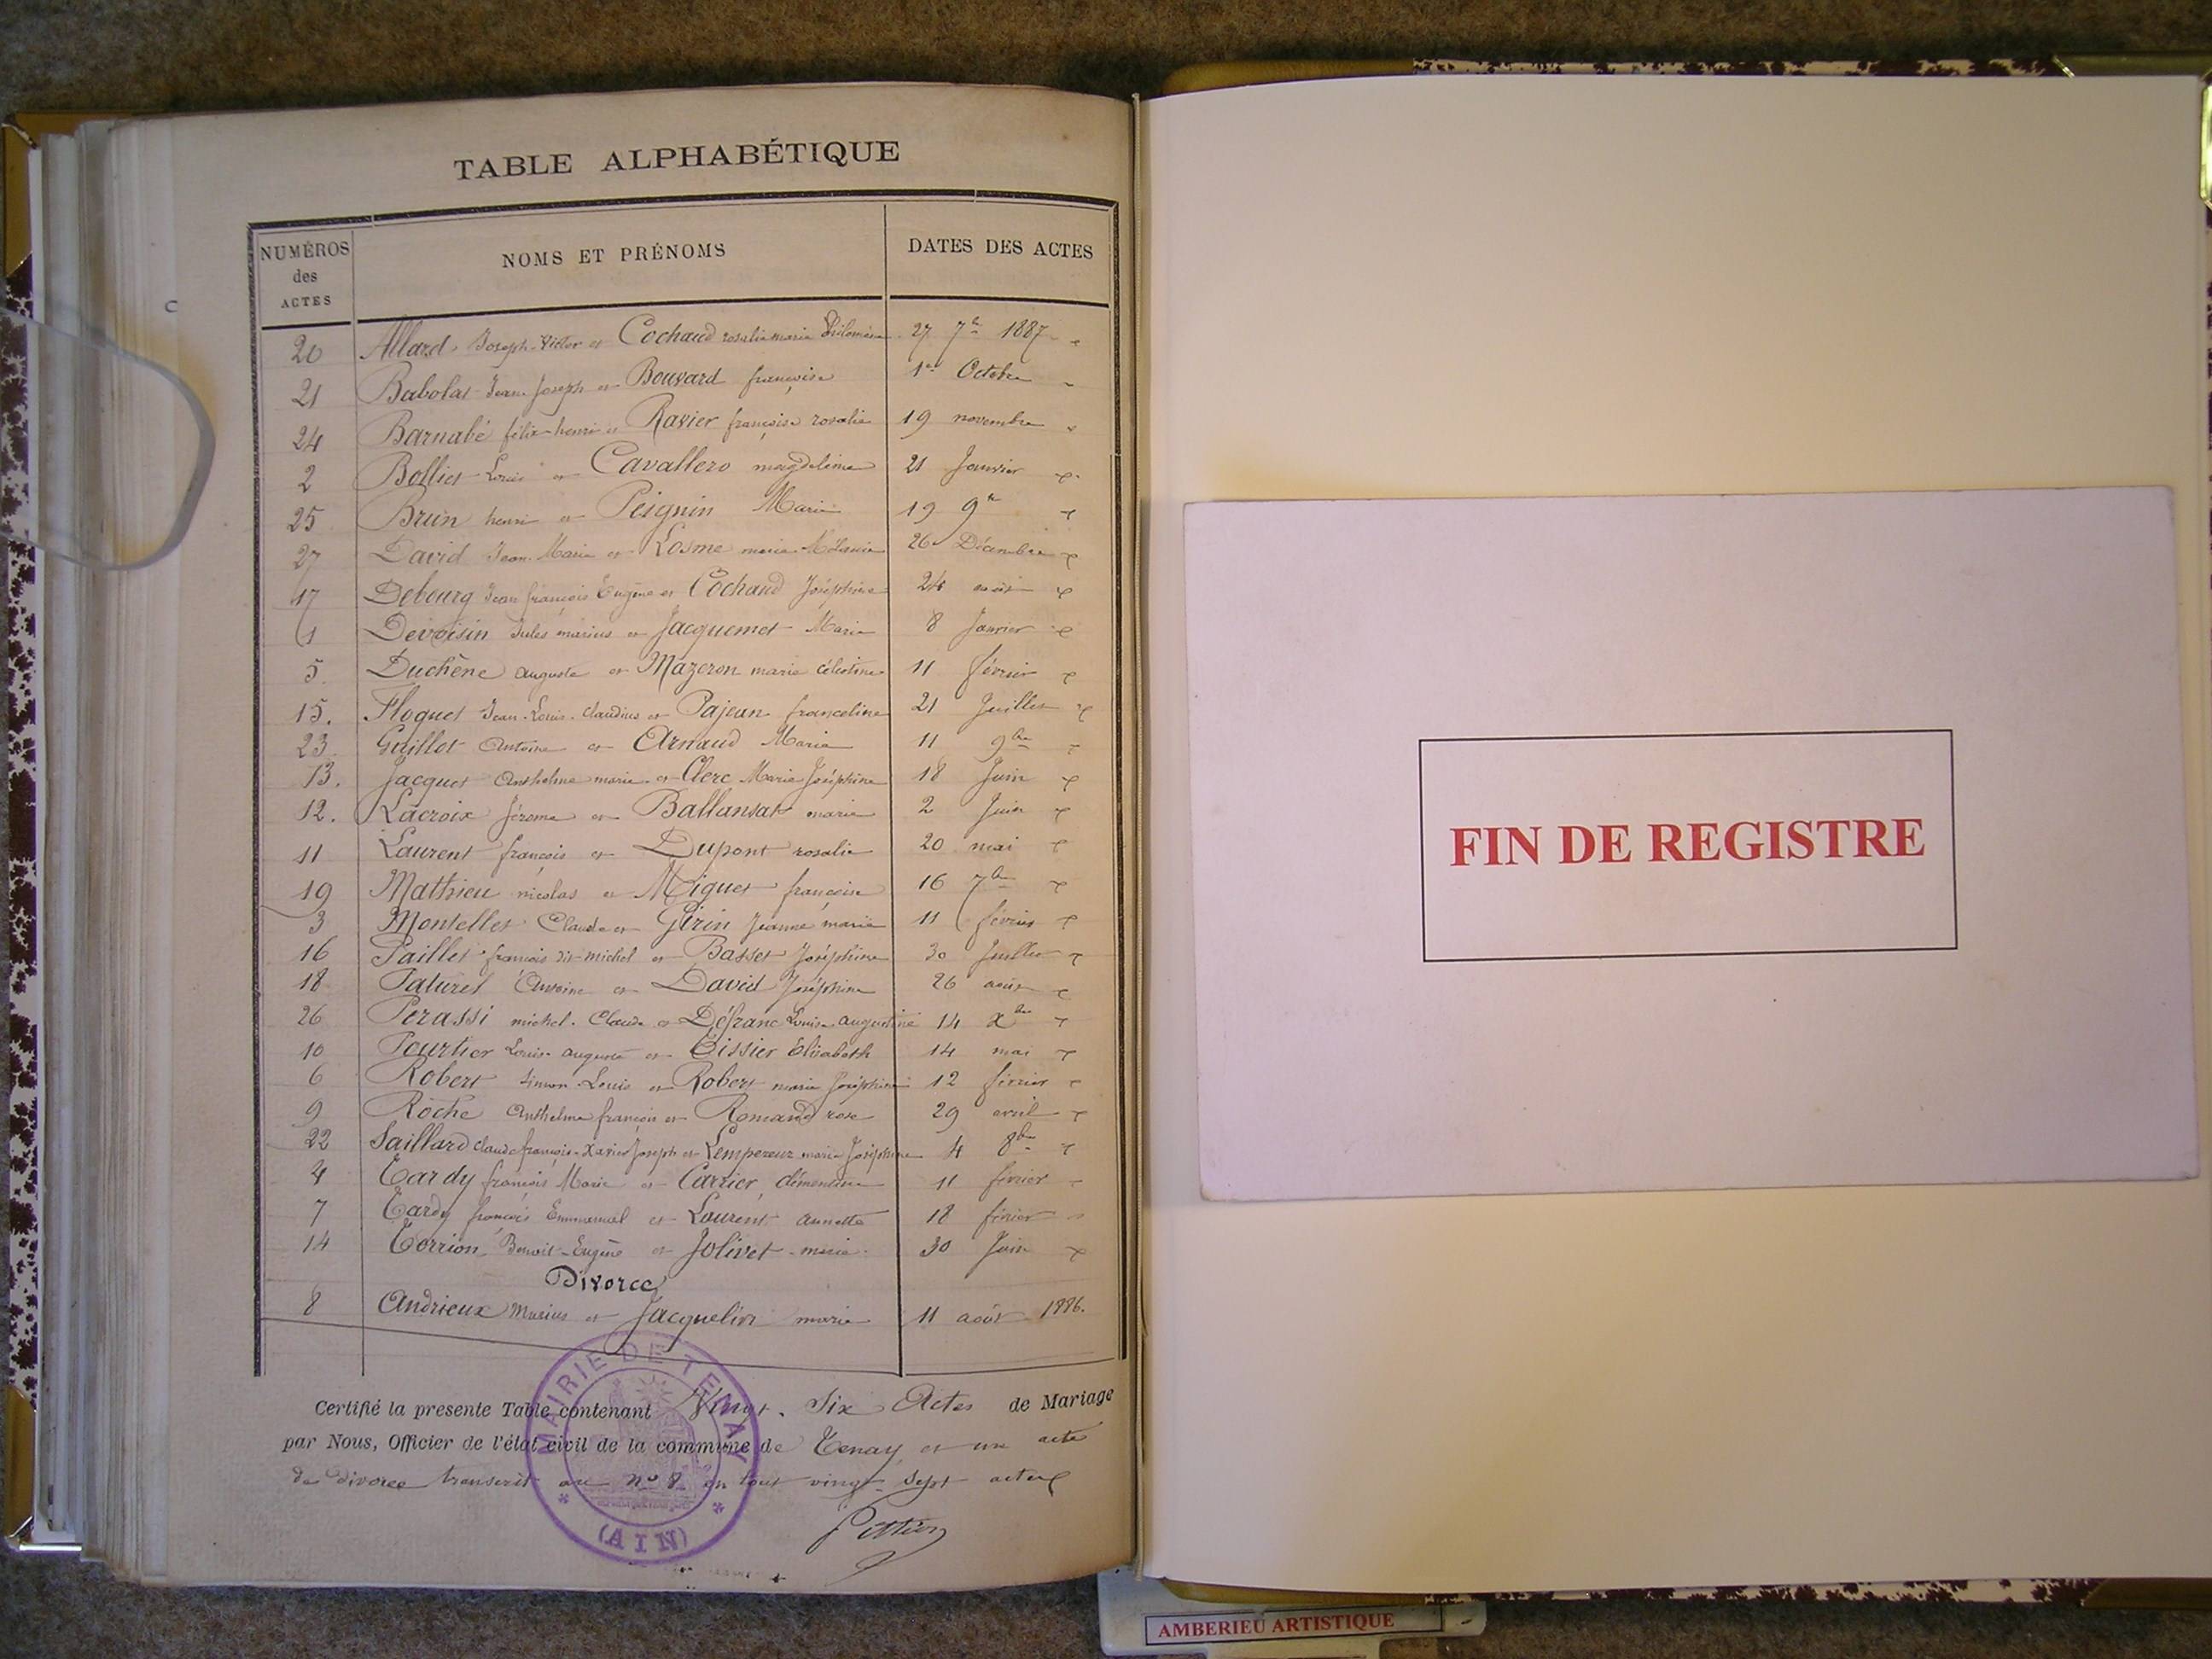 TABLE ALPHABÉTIQUE
NUMÉROS des ACTES NOMS ET PRÉNOMS DATES DES ACTES
20 Allard Joseph Victor et Cochaud rosalie marie Philomène 27 7bre 1887
21 Babolat Jean Joseph et Bouvard françoise 1er Octobre
24 Barnabé félix henri et Ravier françoise rosalie 19 novembre
2 Bolliet Louis et Cavallero magdeleine 21 Janvier
25 Brun henri et Peignin Marie 19 9bre
27 David Jean Marie et Losme marie Mélanie 26 Décembre
17 Debourg Jean françois Eugène et Cochaud Joséphine 24 août
1 Devoisin Jules marius et Jacquemet Marie 8 Janvier
5. Duchêne auguste et Mazeron marie célestine 11 février
15. Floquet Jean-Louis-Claudius et Pajean franceline 21 Juillet
23. Guillot Antoine et Arnaud Marie 11 9bre
13. Jacquet Anthelme marie et Clerc Marie Joséphine 18 Juin
12. Lacroix Jérome et Ballansat marie 2 Juin
11 Laurent françois et Dupont rosalie 20 mai
19 Mathieu nicolas et Miguet françoise 16 7bre
3 Montellet Claude et Girin Jeanne marie 11 février
16 Paillet françois dit michel et Basset Joséphine 30 Juillet
18 Paturel Antoine et David Joséphine 26 août
26 Perassi michel-Claude et Défranc Louise augustine 14 xbre
10 Peurtier Louis auguste et Tissier Elisabeth 14 mai
6 Robert Simon-Louis et Robert marie Joséphine 12 février
9 Roche Anthelme françois et Romand rose 29 avril
22 Saillard claude françois-Xavier Joseph et Lempereur marie Joséphine 4 8bre
4 Tardy françois Marie et Carrier clémentine 11 février
7 Tardy françois Emmanuel et Laurent annette 18 février
14 Terrion Benoit-Eugène et Jolivet marie 30 Juin
Divorce
8 Andrieux Marius et Jacquelin marie 11 août 1886.
Certifié la presente Table contenant Vingt-Six Actes de Mariage
par Nous, Officier de l'état civil de la commune de Tenay et un acte
de divorce transcrit au no 8 en tout vingt-sept actes
MAIRIE DE TENAY
(AIN)
FIN DE REGISTRE
AMBERIEU ARTISTIQUE